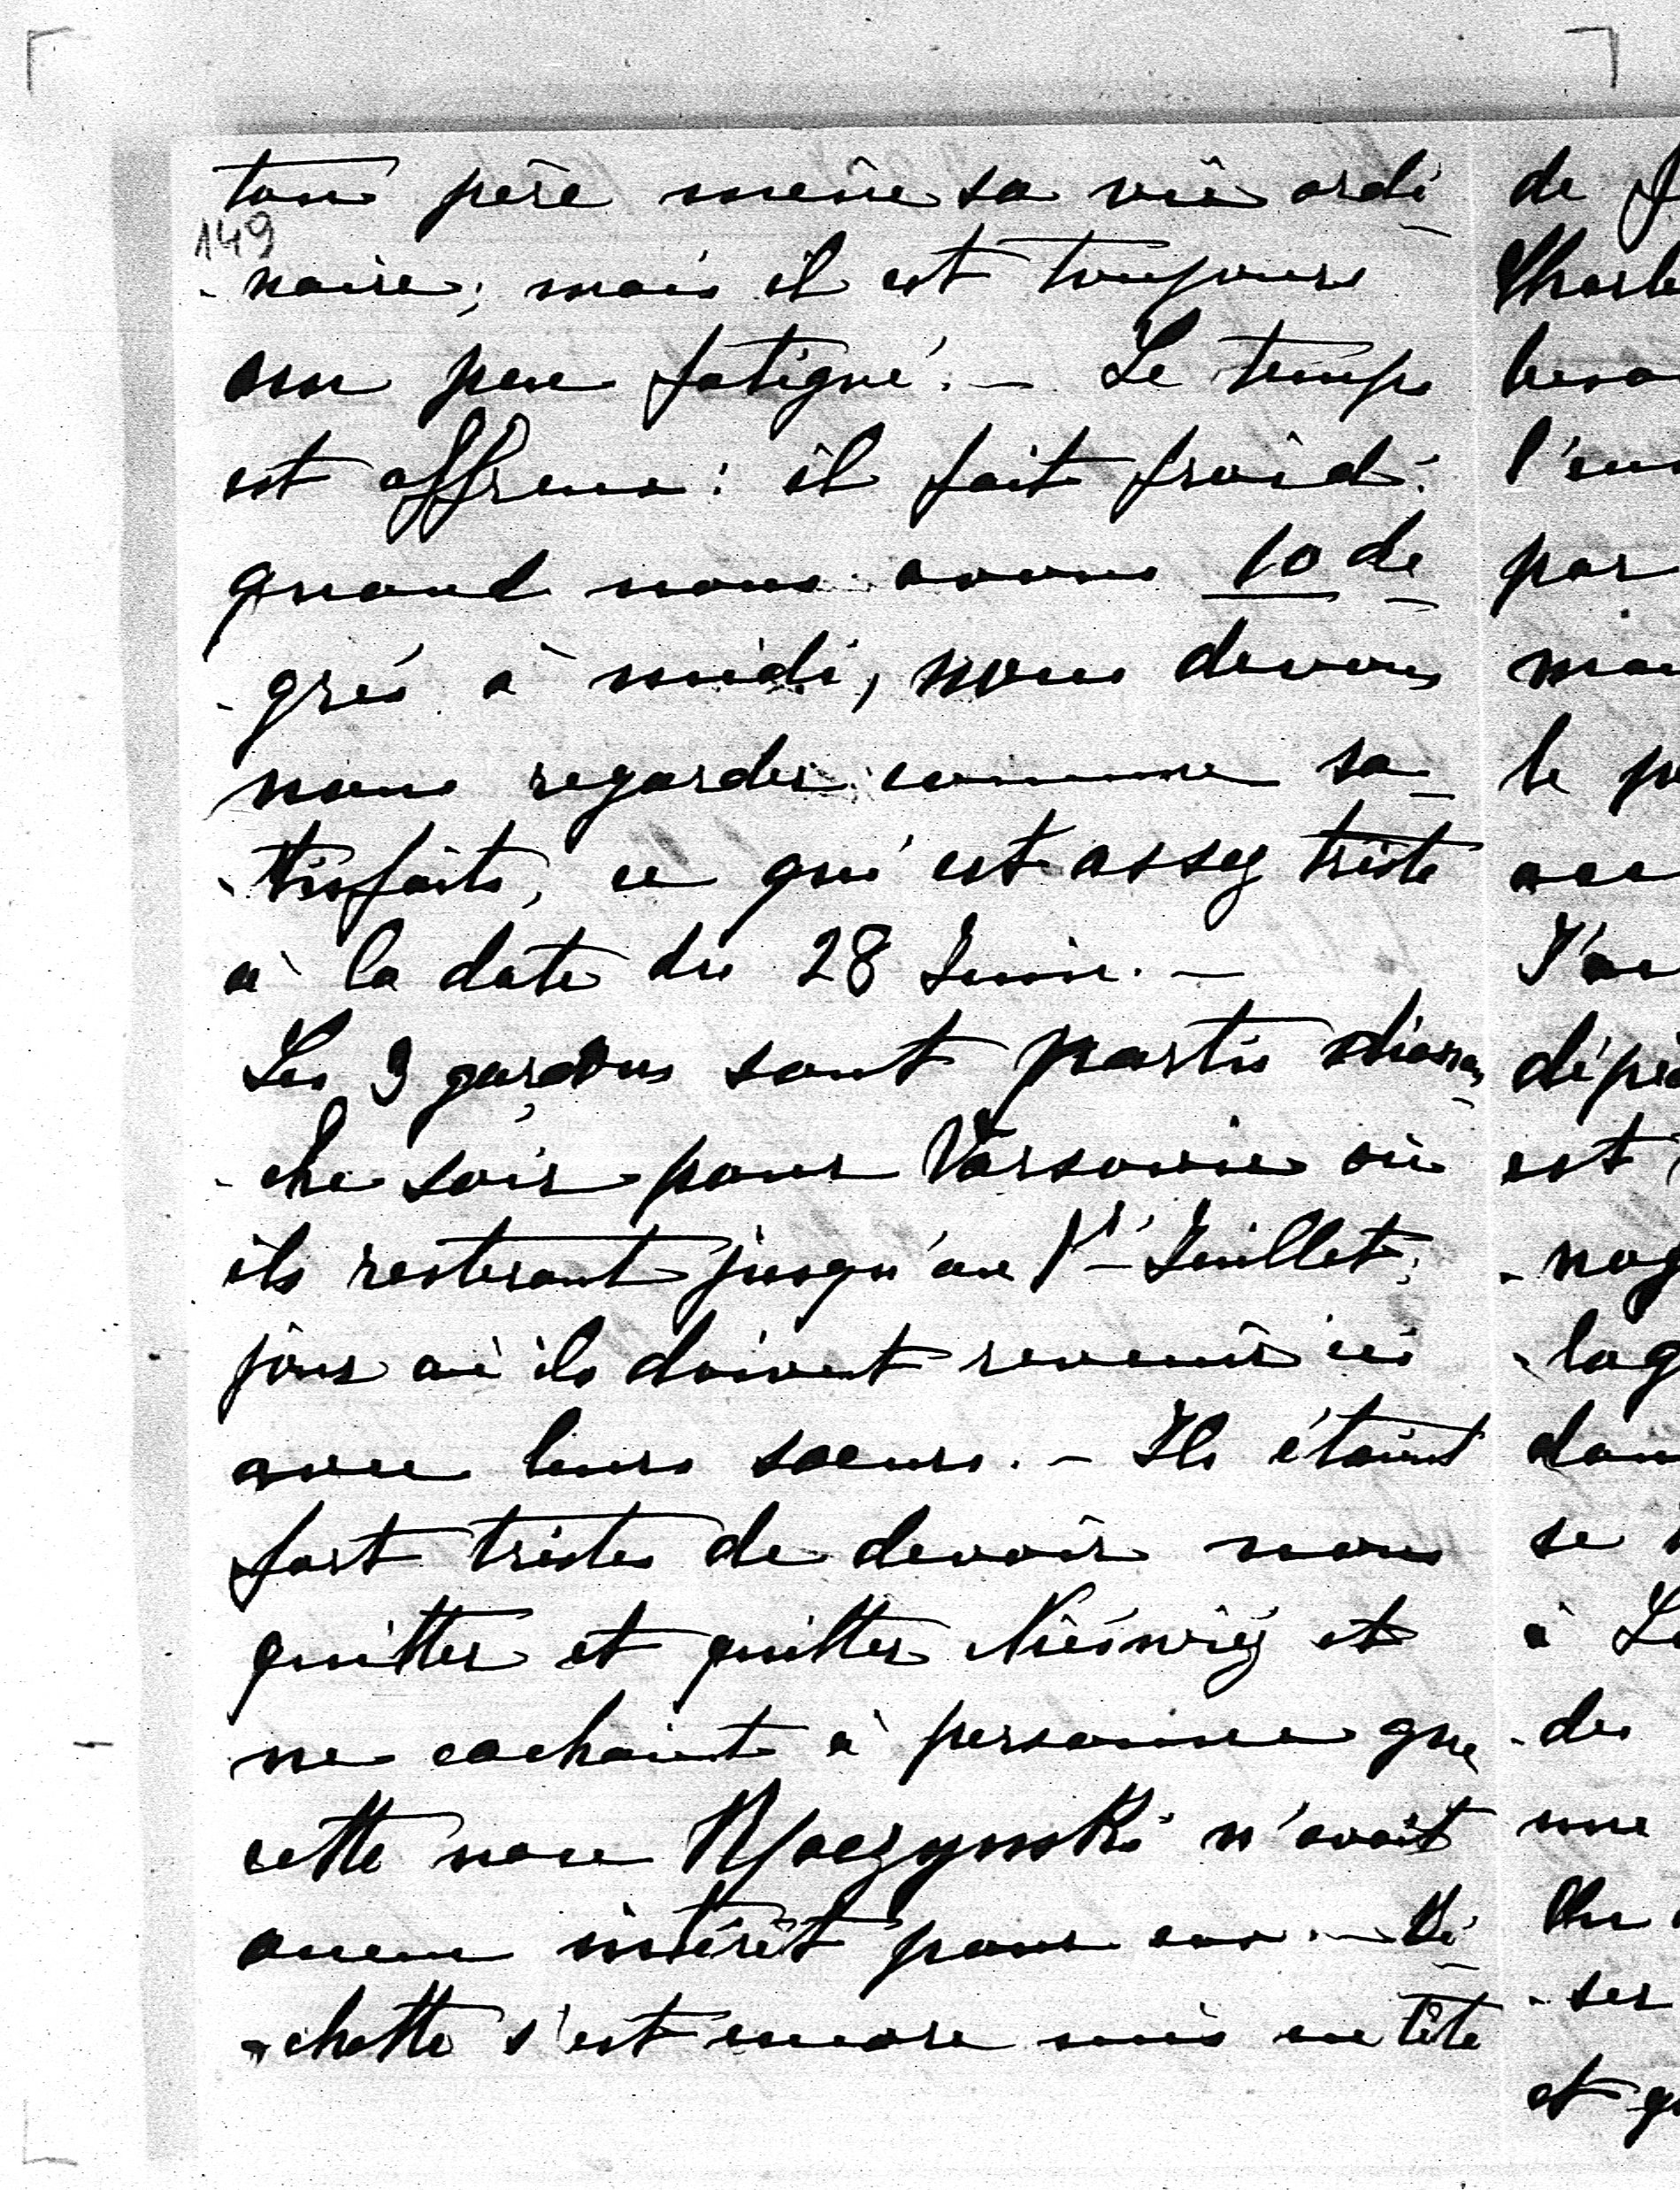 ton père mène sa vie ordi-
149
-naire; mais il est toujours
un peu fatigué. - Le temps
est affreux: il fait froid:
quand nous avons 10 de-
-grés à midi, nous devons
nous regarder comme sa-
-tisfaits, ce qui est assez triste
à la date du 28 Juin. -
Les 3 garçons sont partis diman-
-che soir pour Varsovie où
ils resteront jusqu'au 1r Juillet,
jour où ils doivent revenir ici
avec leurs soeurs. - Ils étaient
fort tristes de devoir nous
quitter et quitter Nieśwież et
ne cachaient à personne que
cette noce n'avait
aucun intérêt pour eux. - Bi-
-chette s'est encore mis en tête
de
par
le
est
se
à
-des
une
-ser
et